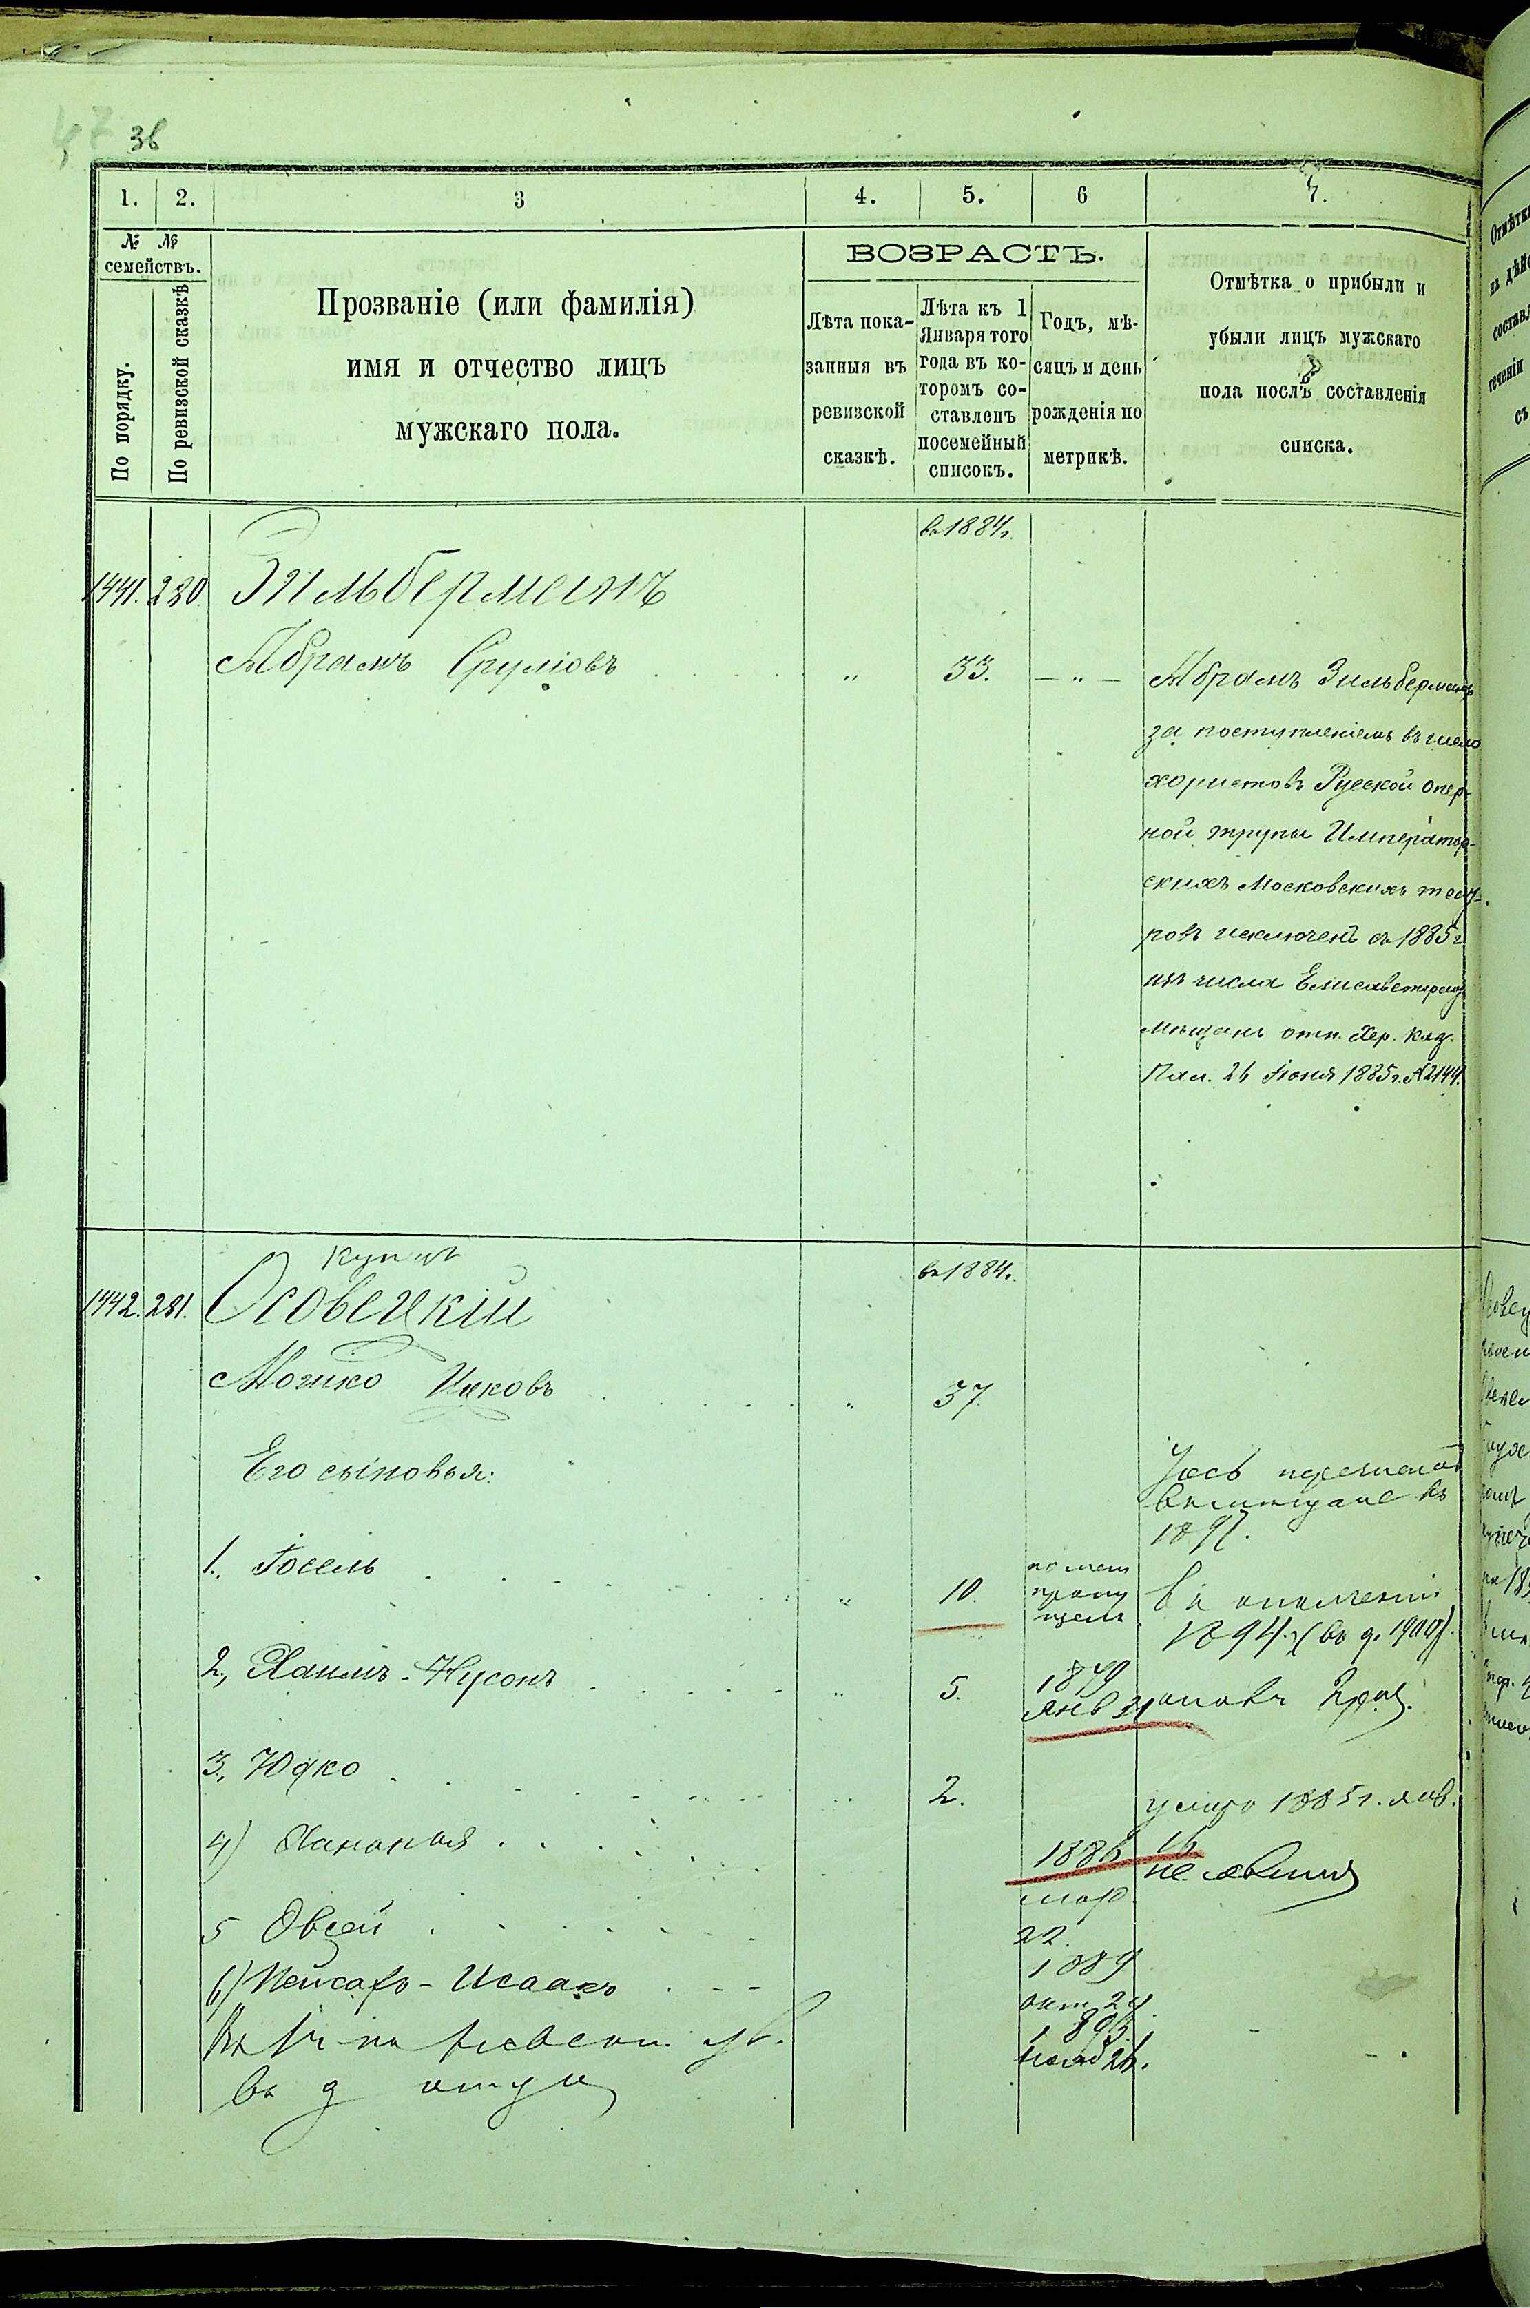 47 36
1. 2. 3 4. 5. 6 7.
№ № семействъ.
По порядку.
По ревизской сказкѣ
Прозваніе (или фамилія)
имя и отчество лицъ
мужскаго пола.
ВОЗРАСТЪ.
Лѣта пока-
занныя въ
ревизской
сказкѣ.
Лѣта къ 1
Января того
года въ ко-
торомъ со-
ставленъ
посемейный
списокъ.
Годъ, мѣ-
сяцъ и день
рожденія по
метрикѣ.
Отмѣтка о прибыли и
убыли лицъ мужскаго
пола послѣ составленія
списка.
въ 1884г.
1441. 280. Зильберманъ
Абрамъ Сруліовъ " 33. — " —
Абрамъ Зильберманъ
за поступленіемъ въ число
хористовъ Русской опер-
ной трупы Император-
скихъ Московскихъ теат-
ровъ исключенъ съ 1885 г
изъ числа Елисаветград.
мѣщанъ отн. Хер. Каз.
Пал. 26 Іюня 1885г. № 2144.
Купцъ
въ 1884.
1442. 281. Осовецкій
Мошко Ицковъ " 37.
Его сыновья:
въ мѣщане въ
1897.
1., Іосель " 10.
1894 г. (въ д. 1900)
2, Хаимъ-Нусонъ " 5. 1879
янв 21
3., Юдко " 2.
умеръ 1885г. янв.
16
4) Ханания 1886
мар.
22.
не явился
5 Овсей 1889
окт 24
6) Пейсахъ-Исаакъ 1893.
нояб 26.